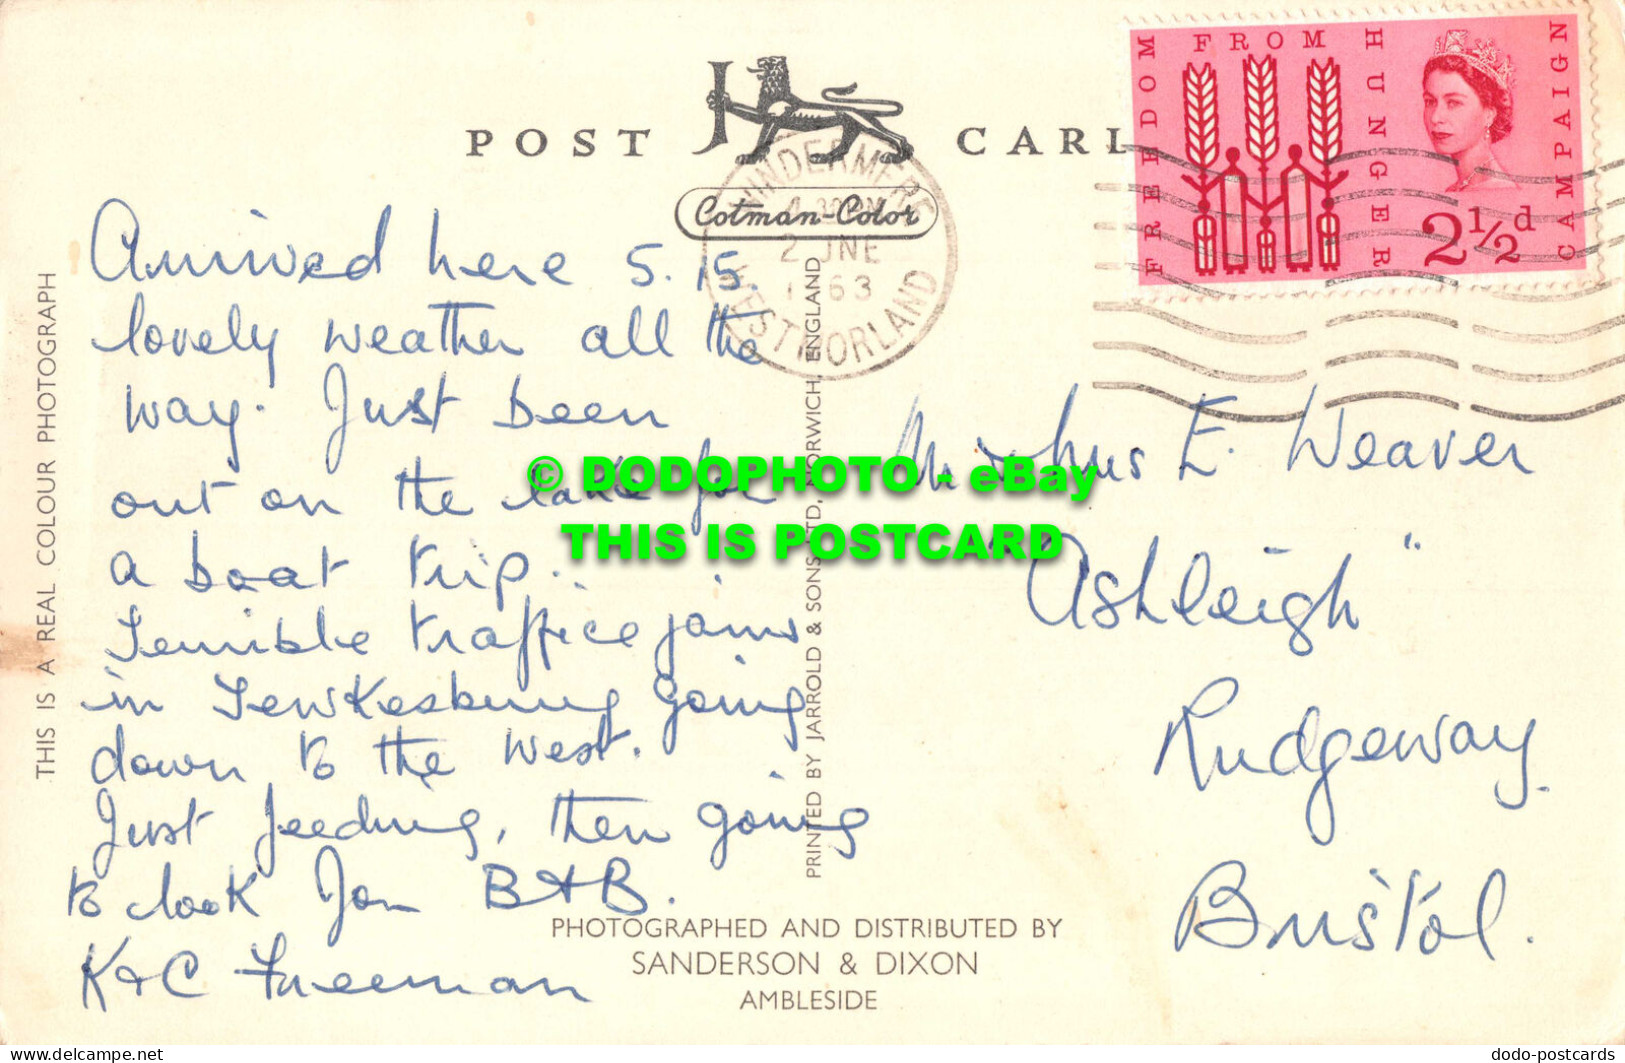 POST CARD
Cotman-Color
WINDERMERE
2 JNE
1963
WESTMORLAND
FREEDOM FROM HUNGER CAMPAIGN
2½d
THIS IS A REAL COLOUR PHOTOGRAPH
Arrived here 5.15.
lovely weather all the
way. Just been
out on the lake for
a boat trip..
Terrible traffice jams
in Tewkesbury going
down to the West.
Just feeding, then going
to look for B+B.
K+C Freeman
PRINTED BY JARROLD & SONS LTD, NORWICH, ENGLAND
Mr & Mrs E. Weaver
"Ashleigh"
Rudgeway.
Bristol.
PHOTOGRAPHED AND DISTRIBUTED BY
SANDERSON & DIXON
AMBLESIDE
© DODOPHOTO - eBay
THIS IS POSTCARD
www.delcampe.net
dodo-postcards